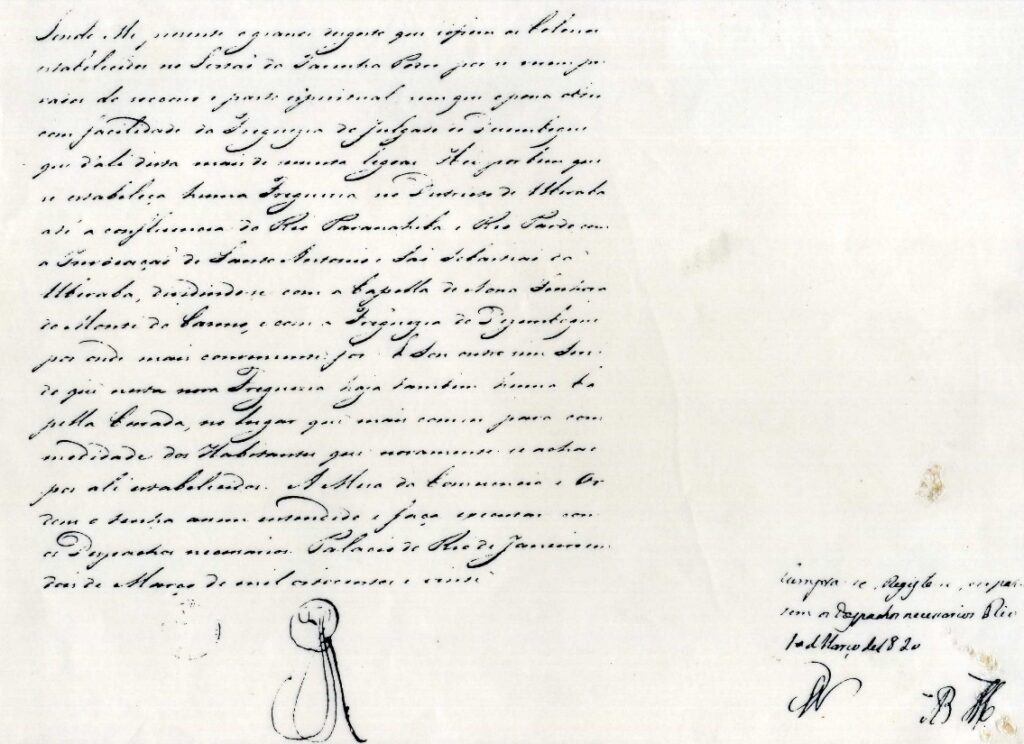 Sendo Me, presente o grande desgosto que soffrem os Colonos
estabelecidos no Sertaõ da Farinha Podre por se verem pri
vados de recurso e pasto espiritual, sem que o possaõ obter
com facilidade da Freguezia do Julgado de Dezemboque
que d'ali dista mais de secenta legoas. Hei por bem que
se estabeleça huma Freguezia no Districto de Uberaba
até a confluencia do Rio Paranahiba e Rio Pardo com
a Invocaçaõ de Santo Antonio e Saõ Sebastiaõ de
Uberaba, dividindo-se com a Capella de Nossa Senhora
do Monte do Carmo, e com a Freguezia do Dezemboque
por onde mais conveniente for. E Sou outro sim Ser
do que nesta nova Freguezia haja tambem huma Ca
pella Curada, no lugar que mais convier para com
modidade dos Habitantes que novamente se achaõ
por ali estabelecidos. A Meza da Consciencia e Or
dens o tenha assim entendido e faça executar com
os Despachos necessarios. Palacio do Rio de Janeiro em
dois de Março de mil oitocentos e vinte
Cumpra-se, Registe-se, e expes
sem os Despachos necessarios Rio
de Março de 1820